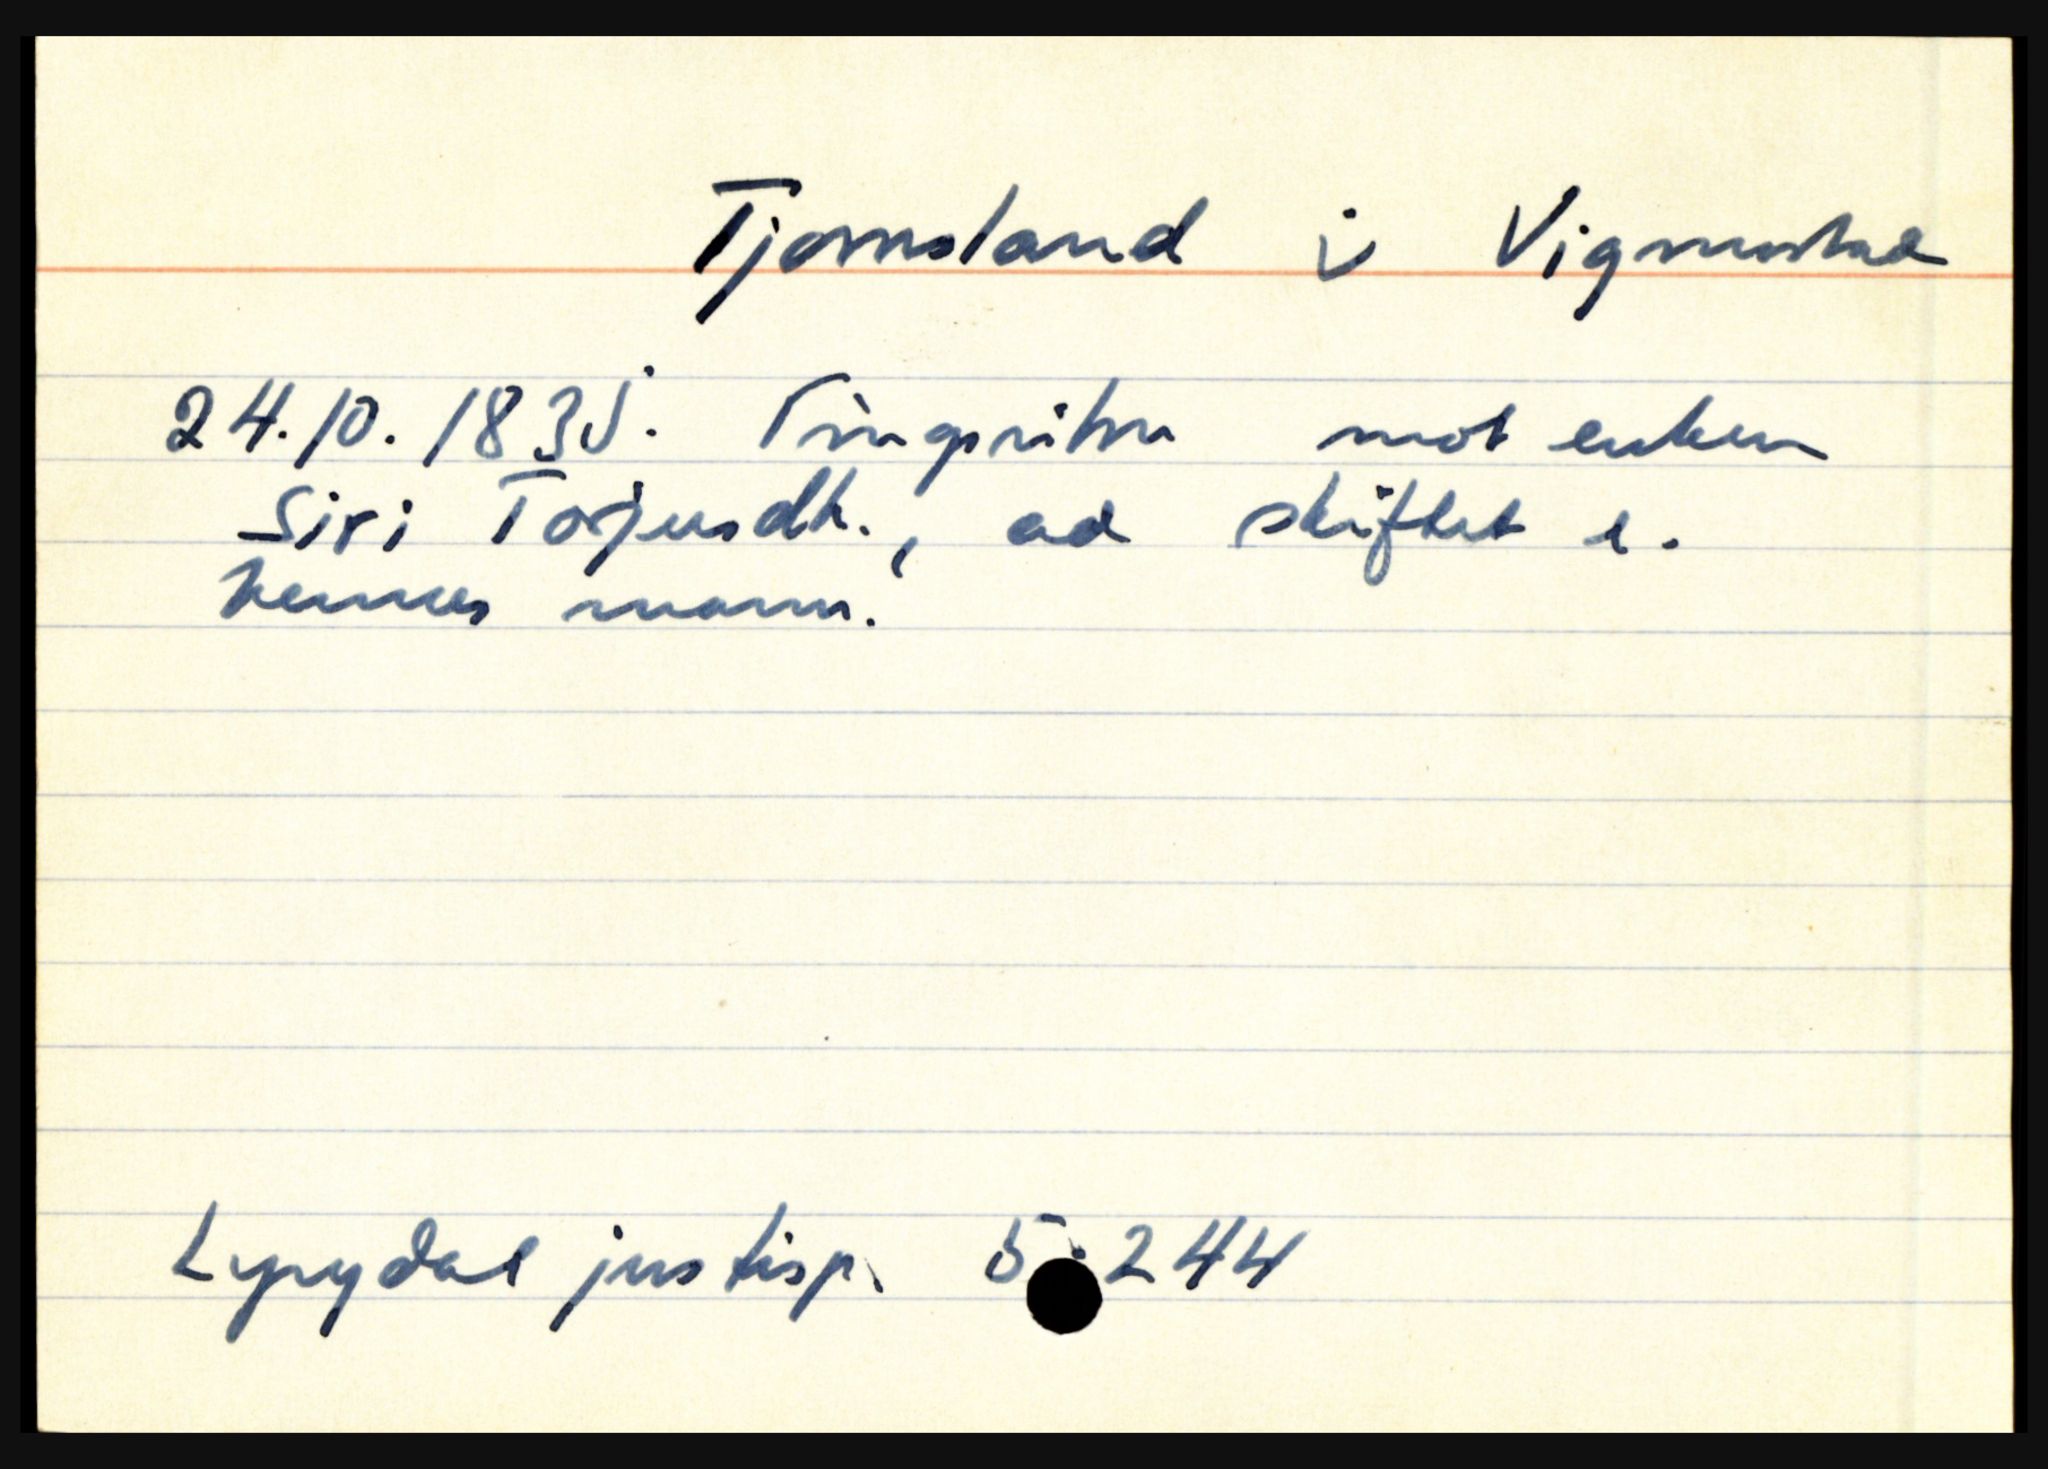 Tjomsland i Vigmostad
24.10.1835. Tingsvitne mot enken
Siri Torjusdtr., ad skiftet e.
hennes mann.
Lyngdal justisp. 5.244